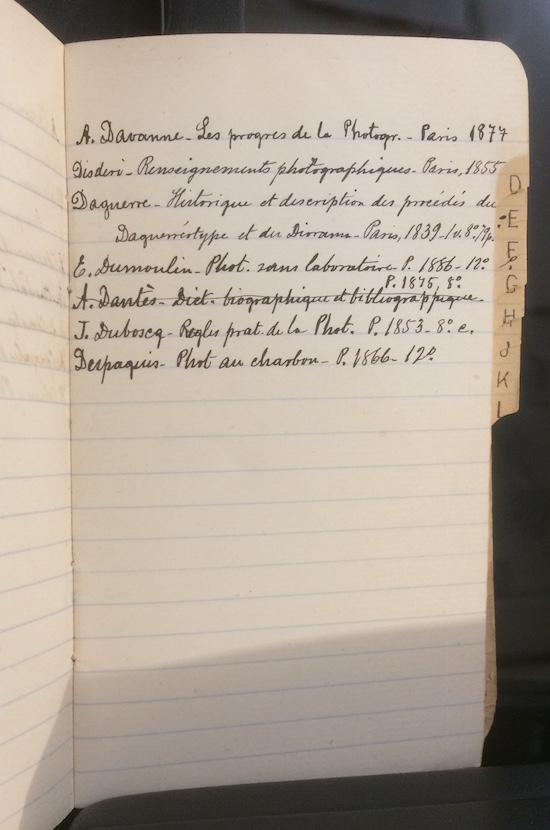 A. Davanne - Les progres de la Photogr. - Paris 1877
Disderi - Renseignements photographiques - Paris, 1855
Daguerre - Historique et description des procédés du
Daguerréotype et du Diorama - Paris, 1839 - 1 v. 8º/9p.
E. Dumoulin - Phot. sans laboratoire P. 1886 - 12º
P. 1875, 8º
A. Dantès - Dict. biographique et bibliographique
J. Duboscq - Regles prat. de la Phot. P. 1853 - 8º c.
Despaquis - Phot au charbon - P. 1866 - 12º
D
E
F
G
H
J
K
L